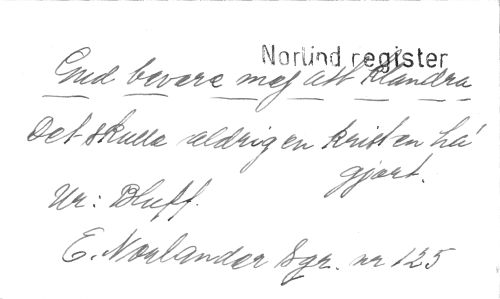 Norlind register
Gud bevare mej att klandra
Det skulle aldrig en kristen ha
gjort.
Ur: Bluff.
E. Norlander Sgr. nr 125